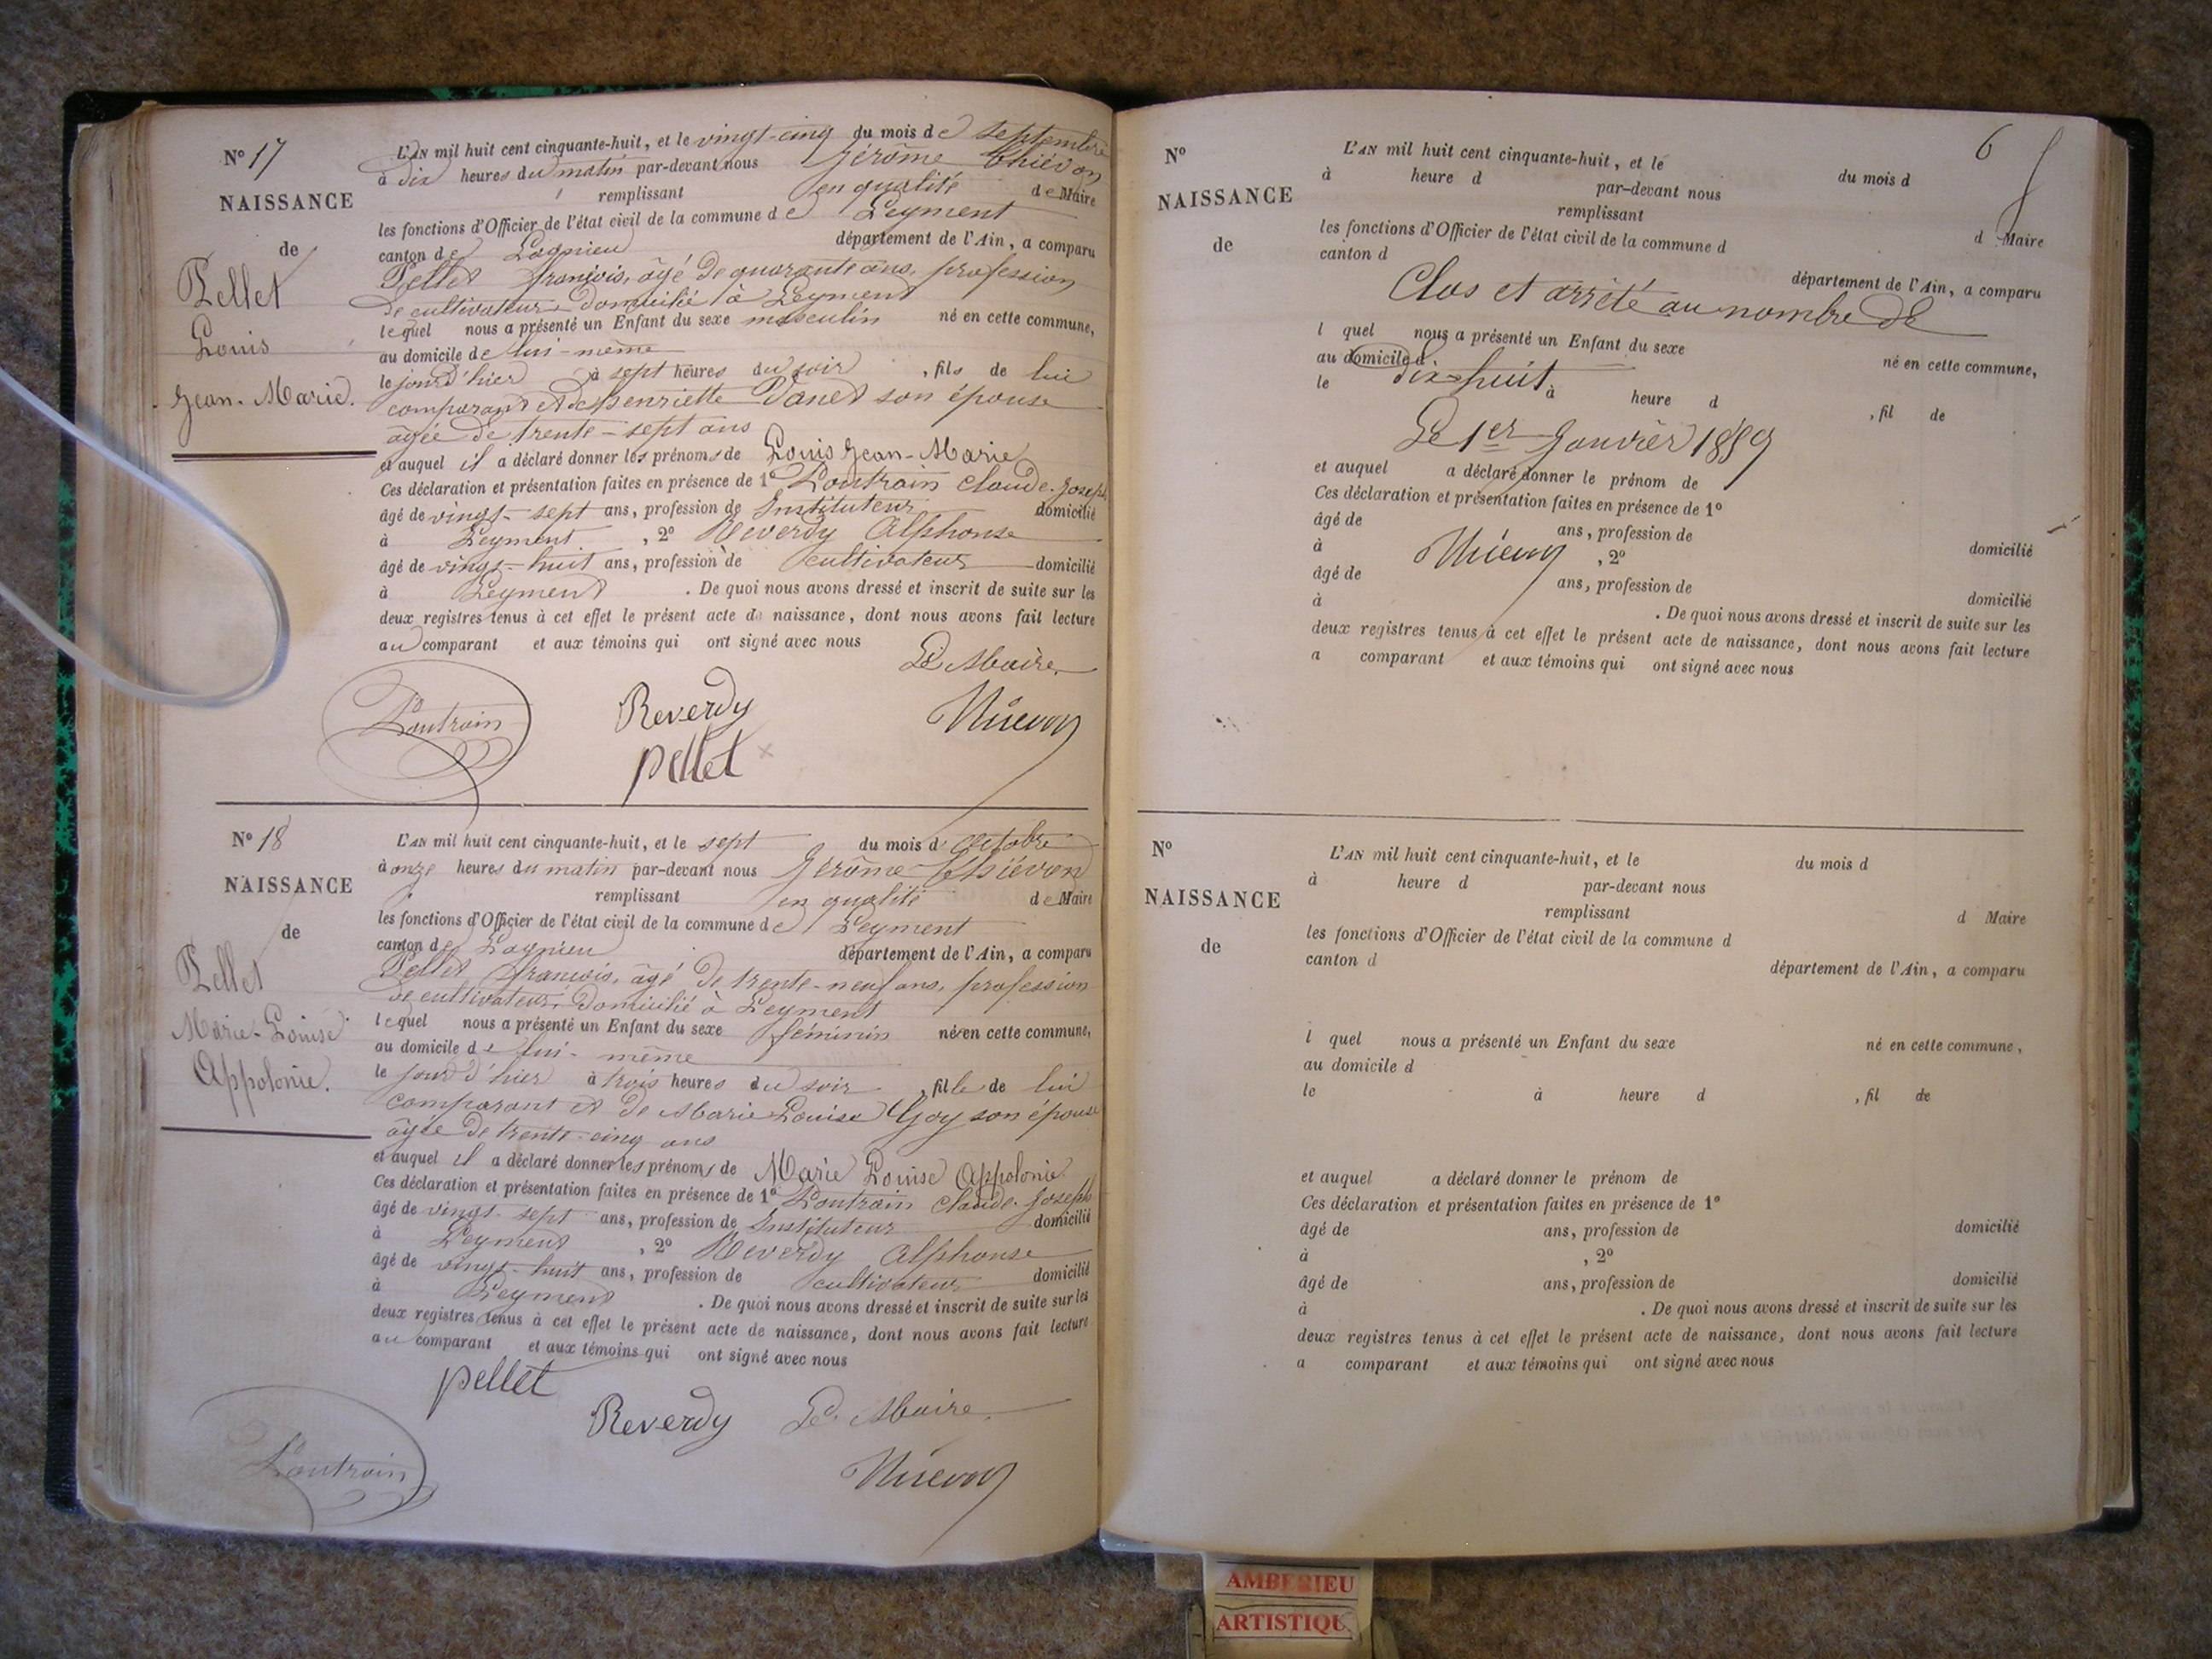 N° 17
NAISSANCE
de
Pellet
Louis
Jean-Marie.
L'AN mil huit cent cinquante-huit, et le vingt-cinq du mois de Septembre
à dix heures du matin par-devant nous Jérôme Thiévon
remplissant en qualité de Maire
les fonctions d'Officier de l'état civil de la commune de Leyment
canton de Lagnieu département de l'Ain, a comparu
Pellet françois, âgé de quarante ans, profession
de cultivateur, domicilié à Leyment
lequel nous a présenté un Enfant du sexe masculin né en cette commune,
au domicile de lui-même
le jour d'hier à sept heures du soir, fils de lui
comparant et de henriette Danet son épouse
âgée de trente-sept ans
et auquel il a déclaré donner les prénoms de Louis Jean-Marie
Ces déclaration et présentation faites en présence de 1° Loutrain Claude-Joseph
âgé de vingt-sept ans, profession de Instituteur domicilié
à Leyment, 2° Reverdy Alphonse
âgé de vingt-huit ans, profession de cultivateur domicilié
à Leyment. De quoi nous avons dressé et inscrit de suite sur les
deux registres tenus à cet effet le présent acte de naissance, dont nous avons fait lecture
au comparant et aux témoins qui ont signé avec nous
Le Maire.
Loutrain Reverdy Thiévon
pellet
N° 18
NAISSANCE
de
Pellet
Marie-Louise
Appolonie.
L'AN mil huit cent cinquante-huit, et le sept du mois d'octobre
à onze heures du matin par-devant nous Jérôme Thiévon
remplissant en qualité de Maire
les fonctions d'Officier de l'état civil de la commune de Leyment
canton de Lagnieu département de l'Ain, a comparu
Pellet françois, âgé de trente-neuf ans, profession
de cultivateur, domicilié à Leyment
lequel nous a présenté un Enfant du sexe féminin né en cette commune,
au domicile de lui-même
le jour d'hier à trois heures du soir, fille de lui
comparant et de Marie Louise Goy son épouse
âgée de trente-cinq ans
et auquel il a déclaré donner les prénoms de Marie Louise Appolonie
Ces déclaration et présentation faites en présence de 1° Loutrain Claude-Joseph
âgé de vingt-sept ans, profession de Instituteur domicilié
à Leyment, 2° Reverdy Alphonse
âgé de vingt-huit ans, profession de cultivateur domicilié
à Leyment. De quoi nous avons dressé et inscrit de suite sur les
deux registres tenus à cet effet le présent acte de naissance, dont nous avons fait lecture
au comparant et aux témoins qui ont signé avec nous
pellet
Reverdy Le Maire.
Loutrain Thiévon
6
N°
NAISSANCE
de
L'AN mil huit cent cinquante-huit, et le du mois d
à heure d par-devant nous
remplissant d Maire
les fonctions d'Officier de l'état civil de la commune d
canton d département de l'Ain, a comparu
Clos et arrêté au nombre de
l quel nous a présenté un Enfant du sexe né en cette commune,
au domicile d
dix-huit
le à heure d , fil de
Le 1er Janvier 1859
et auquel a déclaré donner le prénom de
Ces déclaration et présentation faites en présence de 1°
âgé de ans, profession de domicilié
à , 2°
Thiévon
âgé de ans, profession de domicilié
à . De quoi nous avons dressé et inscrit de suite sur les
deux registres tenus à cet effet le présent acte de naissance, dont nous avons fait lecture
a comparant et aux témoins qui ont signé avec nous
N°
NAISSANCE
de
L'AN mil huit cent cinquante-huit, et le du mois d
à heure d par-devant nous
remplissant d Maire
les fonctions d'Officier de l'état civil de la commune d
canton d département de l'Ain, a comparu
l quel nous a présenté un Enfant du sexe né en cette commune,
au domicile d
le à heure d , fil de
et auquel a déclaré donner le prénom de
Ces déclaration et présentation faites en présence de 1°
âgé de ans, profession de domicilié
à , 2°
âgé de ans, profession de domicilié
à . De quoi nous avons dressé et inscrit de suite sur les
deux registres tenus à cet effet le présent acte de naissance, dont nous avons fait lecture
a comparant et aux témoins qui ont signé avec nous
AMBERIEU
ARTISTIQU